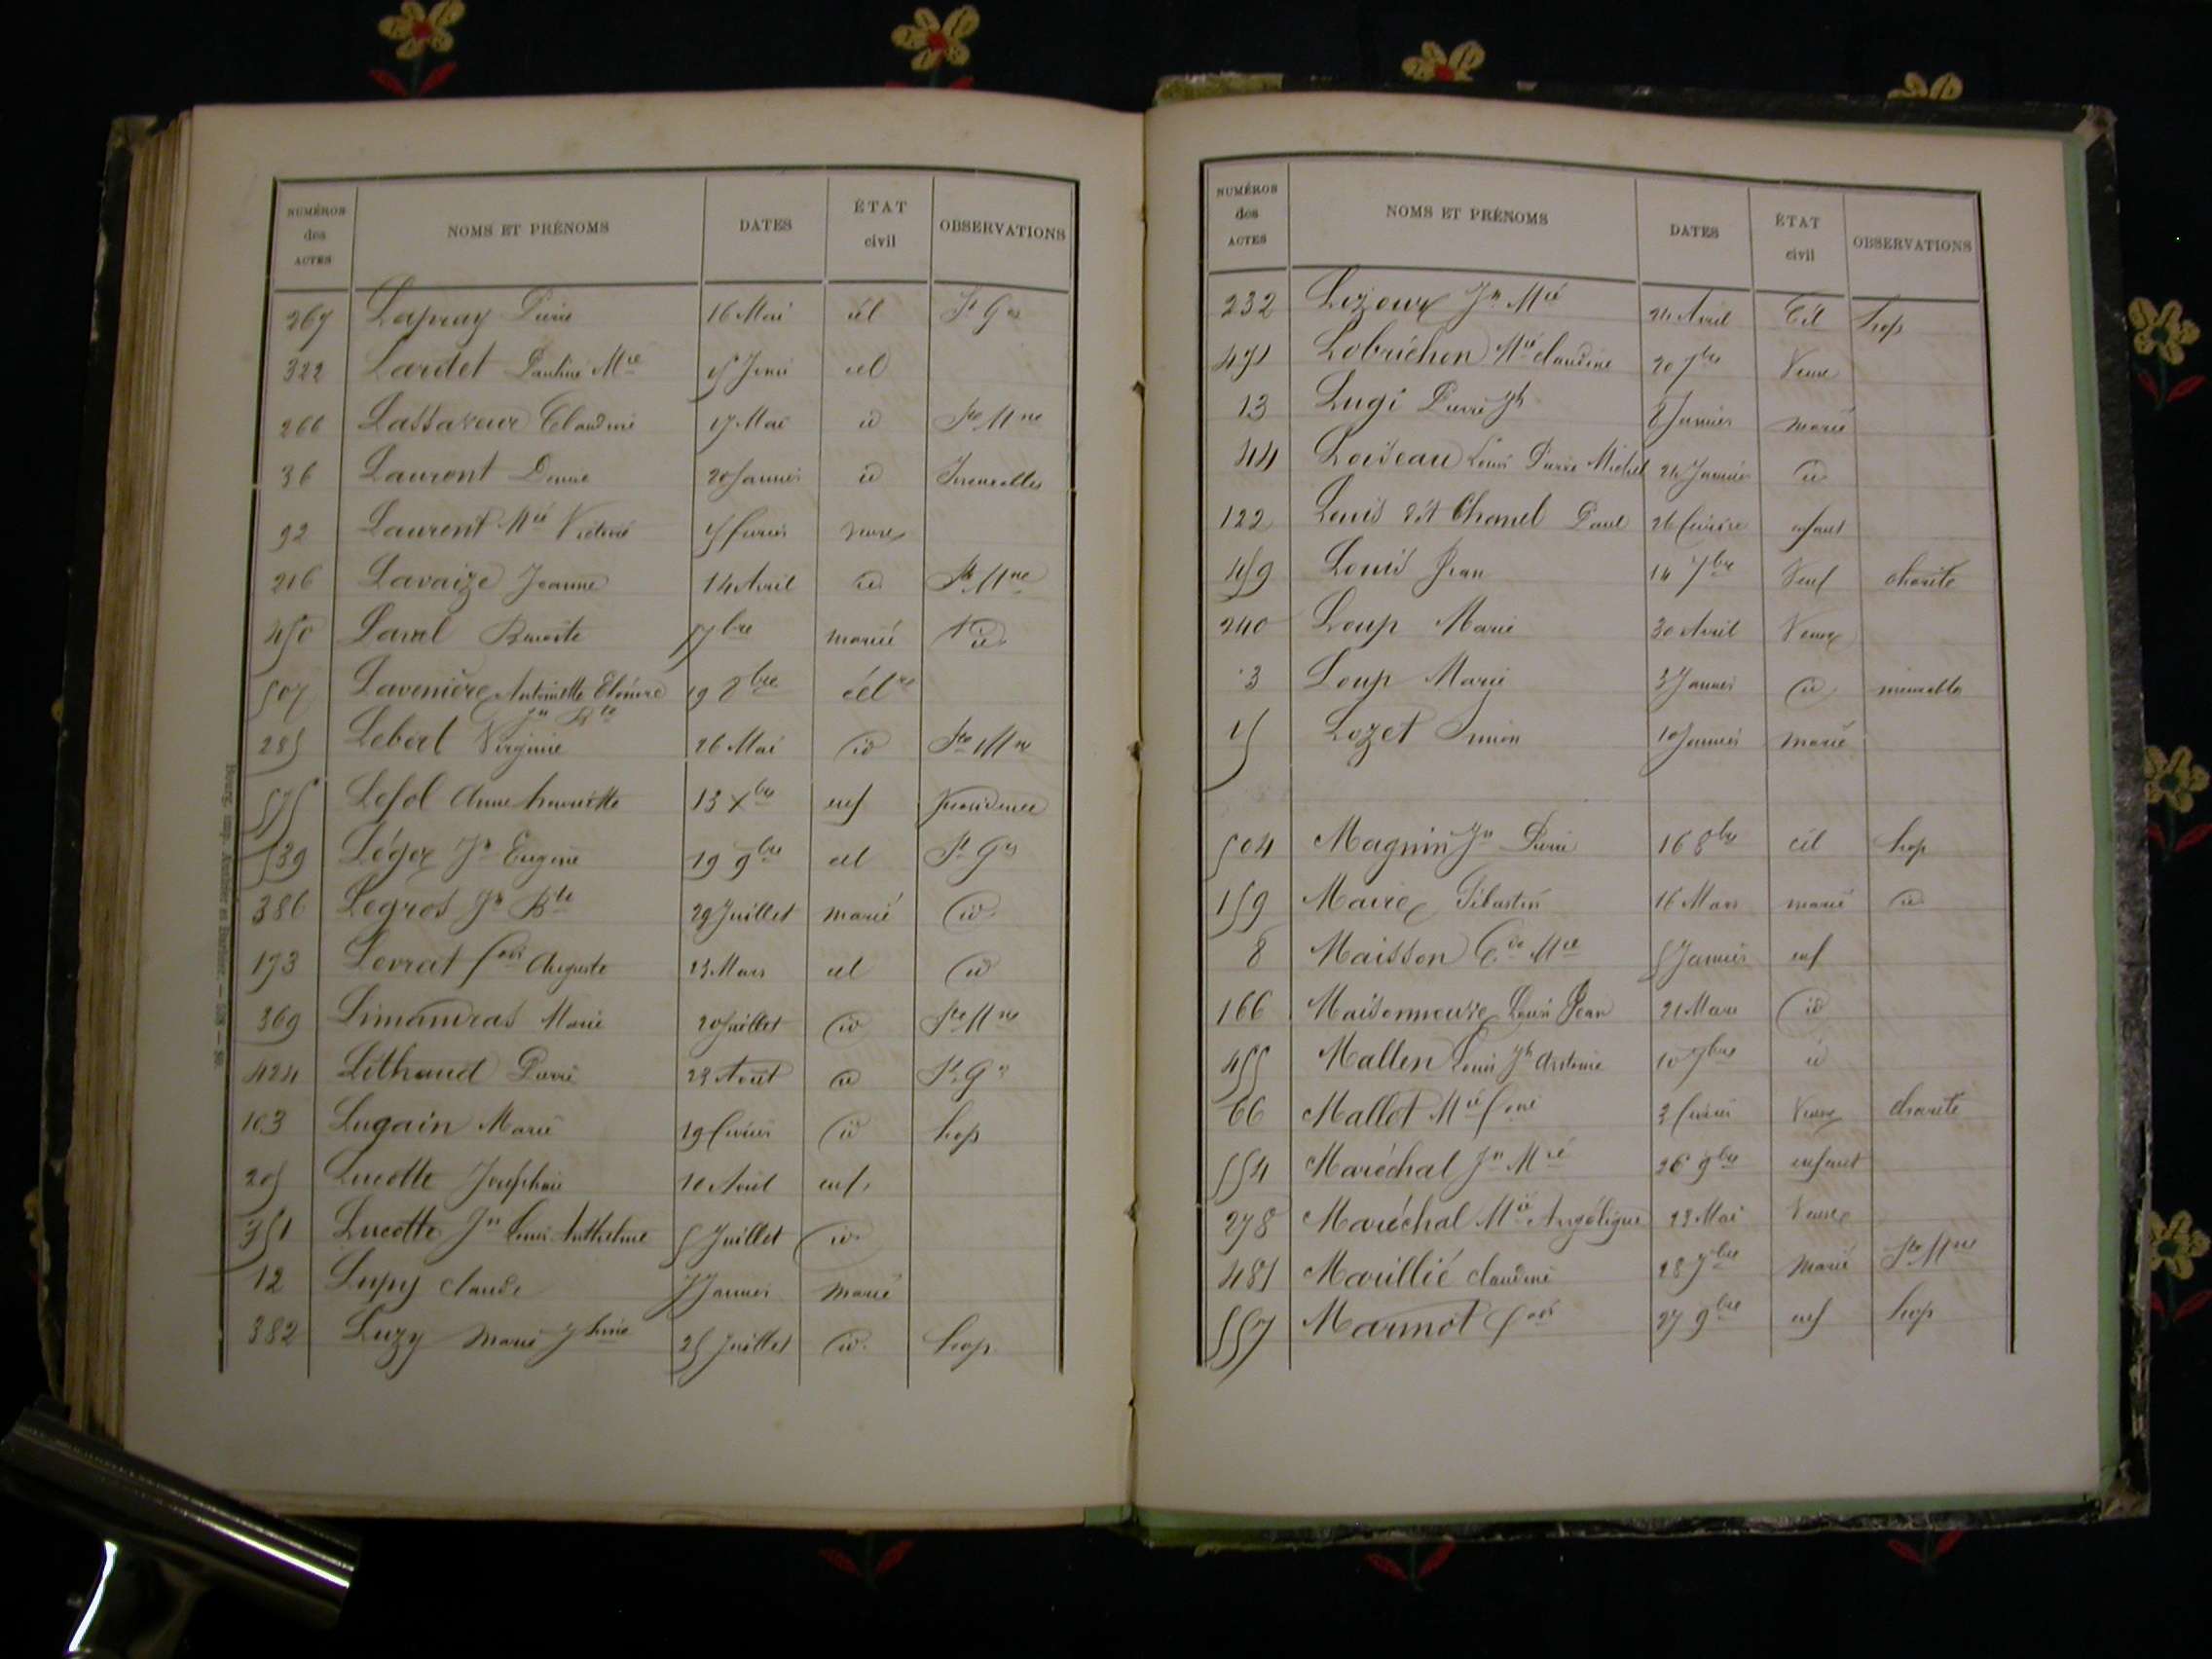 NUMÉROS des ACTES NOMS ET PRÉNOMS DATES ÉTAT civil OBSERVATIONS
267 Lapray Pierre 16 Mai cél St Ges
322 Lardet Pauline Mie 15 Juin cel
266 Lassaveur Claudine 17 Mai id Ste Mne
36 Laurent Denise 20 Janvier id Incurables
92 Laurent Mie Victoire veuve
216 Lavaize Jeanne 14 Avril id Ste Mne
450 Laval Benoite 5 7bre marié id
507 Lavenière Antoinette Eléonore 19 8bre cél re
Jn Bte
285 Lebert Virginie 26 Mai id Ste Mne
575 Lefol Anne henriette 13 Xbre enf Providence
539 Léger Jh Eugène 19 9bre cel St Ges
386 Legros Jn Bte 29 Juillet marié id
173 Levrat fois Auguste 23 Mars cel id
369 Limandras Marie 20 Juillet id Ste Mne
424 Lithaud Pierre 23 Août id St Ges
103 Lugain Marie 19 fevrier id hop
205 Lucotte Josephine 10 Avril enf
351 Lucotte Jn Louis Anthelme 5 Juillet id
12 Lupy claude 7 Janvier marié
382 Luzy marie Jhine 25 Juillet id hop.
Bourg, imp.
NUMÉROS des ACTES NOMS ET PRÉNOMS DATES ÉTAT civil OBSERVATIONS
232 Lezeour Jn Mie 24 Avril Cél hop
471 Lobrichon Mie claudine 20 7bre Veuve
13 Lugi Pierre Jh 8 Janvier marié
44 Loiseau Louis Pierre Michel 24 Janvier id
122 Louis dit Chanel Paul 26 fevrier enfant
459 Louis Jean 14 7bre Veuf charité
240 Loup Marie 30 Avril Veuve
3 Loup Marie 3 Janvier id incurables
15 Lozet 10 Janvier marié
504 Magnin Jn Pierre 16 8bre cél hop
159 Maire Sébastien 16 Mars marié id
8 Maisson Cde Mie 5 Janvier enf
166 Maisonneuve Louis Jean 21 Mars id
455 Mallen Louis Jh Antoine 10 7bre id
66 Mallet Mie foise 3 fevrier Veuve charité
554 Maréchal Jn Mie 26 9bre enfant
278 Maréchal Mie Angélique 23 Mai Veuve
481 Marillié claudine 28 7bre Marié Ste Mne
557 Marmot fois 27 9bre enf hop